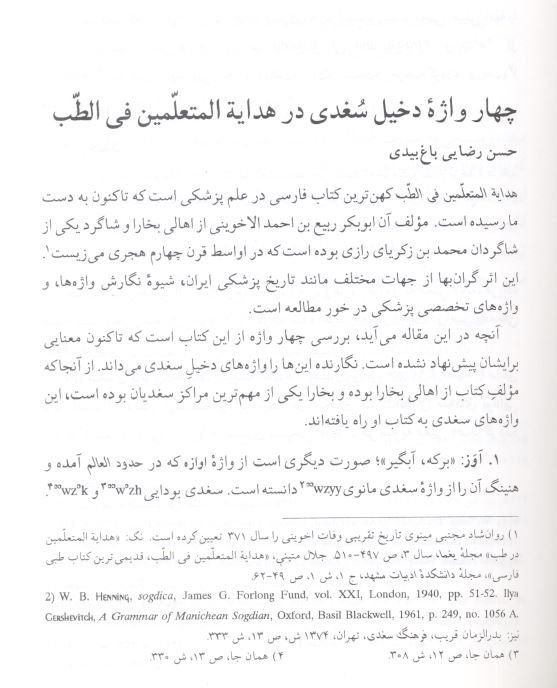 چهار واژهٔ دخیل سُغدی در هدایة المتعلّمین فی الطّب
حسن رضایی باغ‌بیدی
هدایة المتعلّمین فی الطّب کهن‌ترین کتاب فارسی در علم پزشکی است که تاکنون به دست
ما رسیده است. مؤلف آن ابوبکر ربیع بن احمد الاخوینی از اهالی بخارا و شاگرد یکی از
شاگردان محمد بن زکریای رازی بوده است که در اواسط قرن چهارم هجری می‌زیست۱.
این اثر گران‌بها از جهات مختلف مانند تاریخ پزشکی ایران، شیوهٔ نگارش واژه‌ها، و
واژه‌های تخصصی پزشکی در خور مطالعه است.
آنچه در این مقاله می‌آید، بررسی چهار واژه از این کتاب است که تاکنون معنایی
برایشان پیش‌نهاد نشده است. نگارنده این‌ها را واژه‌های دخیل سغدی می‌داند. از آنجا که
مؤلفِ کتاب از اهالی بخارا بوده و بخارا یکی از مهم‌ترین مراکز سغدیان بوده است، این
واژه‌های سغدی به کتاب او راه یافته‌اند.
۱. آوَز: «برکه، آبگیر»؛ صورت دیگری است از واژهٔ اوازه که در حدود العالم آمده و
هنینگ آن را از واژهٔ سغدی مانوی wzyy۲ دانسته است. سغدی بودایی و
۱) روان‌شاد مجتبی مینوی تاریخ تقریبی وفات اخوینی را سال ۳۷۱ تعیین کرده است. نک: «هدایة المتعلّمین
در طب» مجلهٔ یغما، سال ۳، ص ۴۹۷-۵۱۰. جلال متینی، «هدایة المتعلّمین فی الطّب، قدیمی‌ترین کتاب طبی
فارسی»، مجلهٔ دانشکدهٔ ادبیات مشهد، ج ۱، ش ۱، ص ۴۹-۶۲.
2) W. B. HENNING, sogdica, James G. Forlong Fund, vol. XXI, London, 1940, pp. 51-52. Ilya
GERSHEVITCH, A Grammar of Manichean Sogdian, Oxford, Basil Blackwell, 1961, p. 249, no. 1056 A.
نیز: بدرالزمان قریب، فرهنگ سغدی، تهران، ۱۳۷۴ ش، ص ۱۳، ش ۳۳۳.
۳) همان جا، ص ۱۲، ش ۳۰۸. ۴) همان جا، ص ۱۳، ش ۳۳۰.